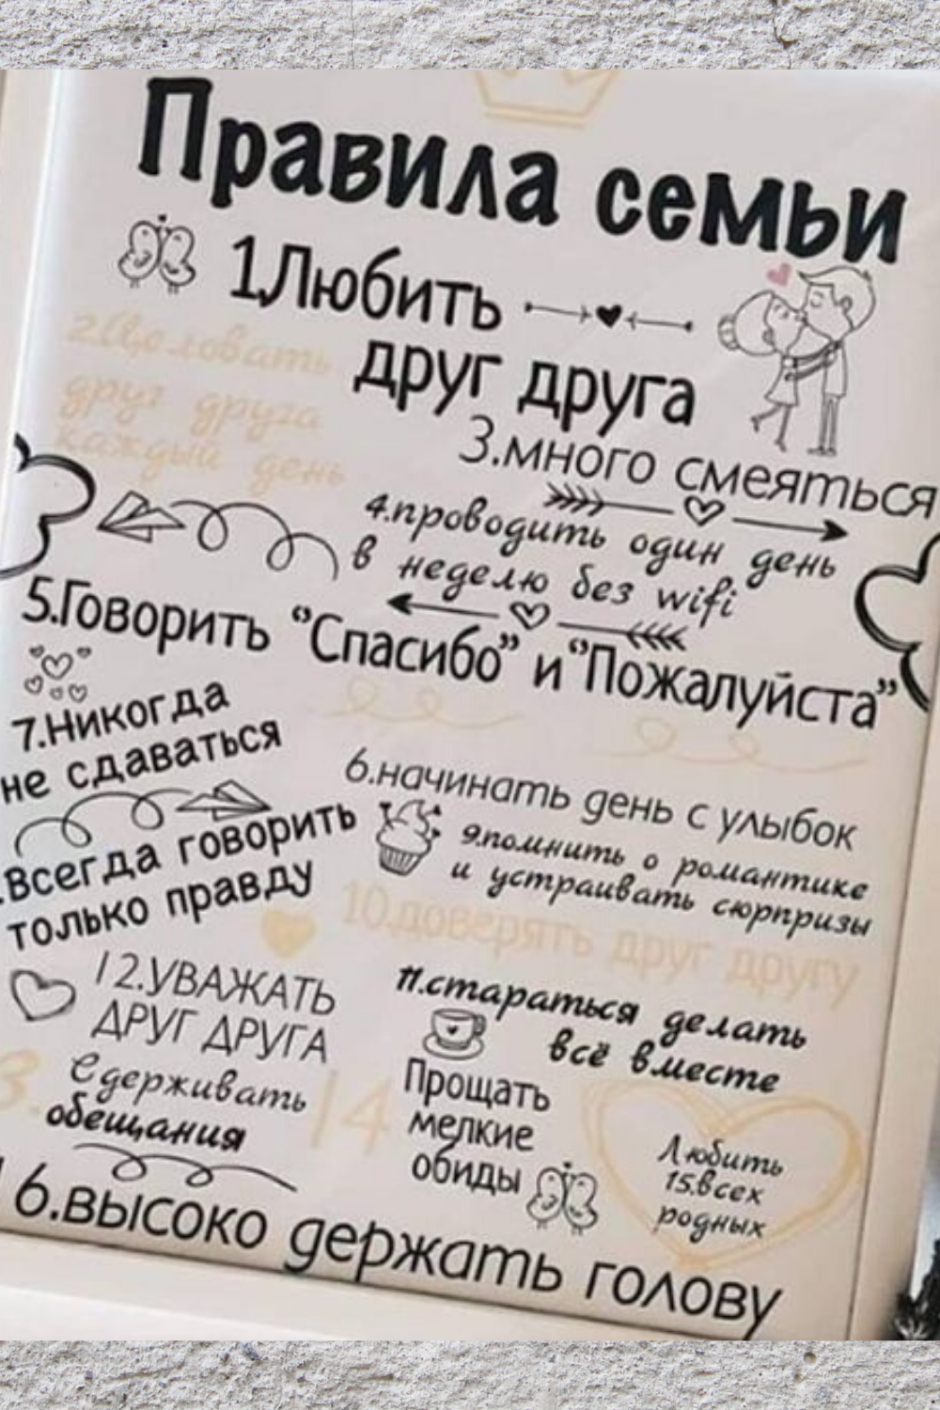 Правила семьи
1.Любить
друг друга
2.Целовать
друг друга
каждый день
3.много смеяться
4.проводить один день
в неделю без wifi
5.Говорить "Спасибо" и "Пожалуйста"
7.Никогда
не сдаваться
6.начинать день с улыбок
.Всегда говорить
только правду
9.помнить о романтике
и устраивать сюрпризы
10.доверять друг другу
12.УВАЖАТЬ
ДРУГ ДРУГА
11.стараться делать
всё вместе
3.
Сдерживать
обещания
14
Прощать
мелкие
обиды
Любить
15.всех
родных
16.высоко держать голову